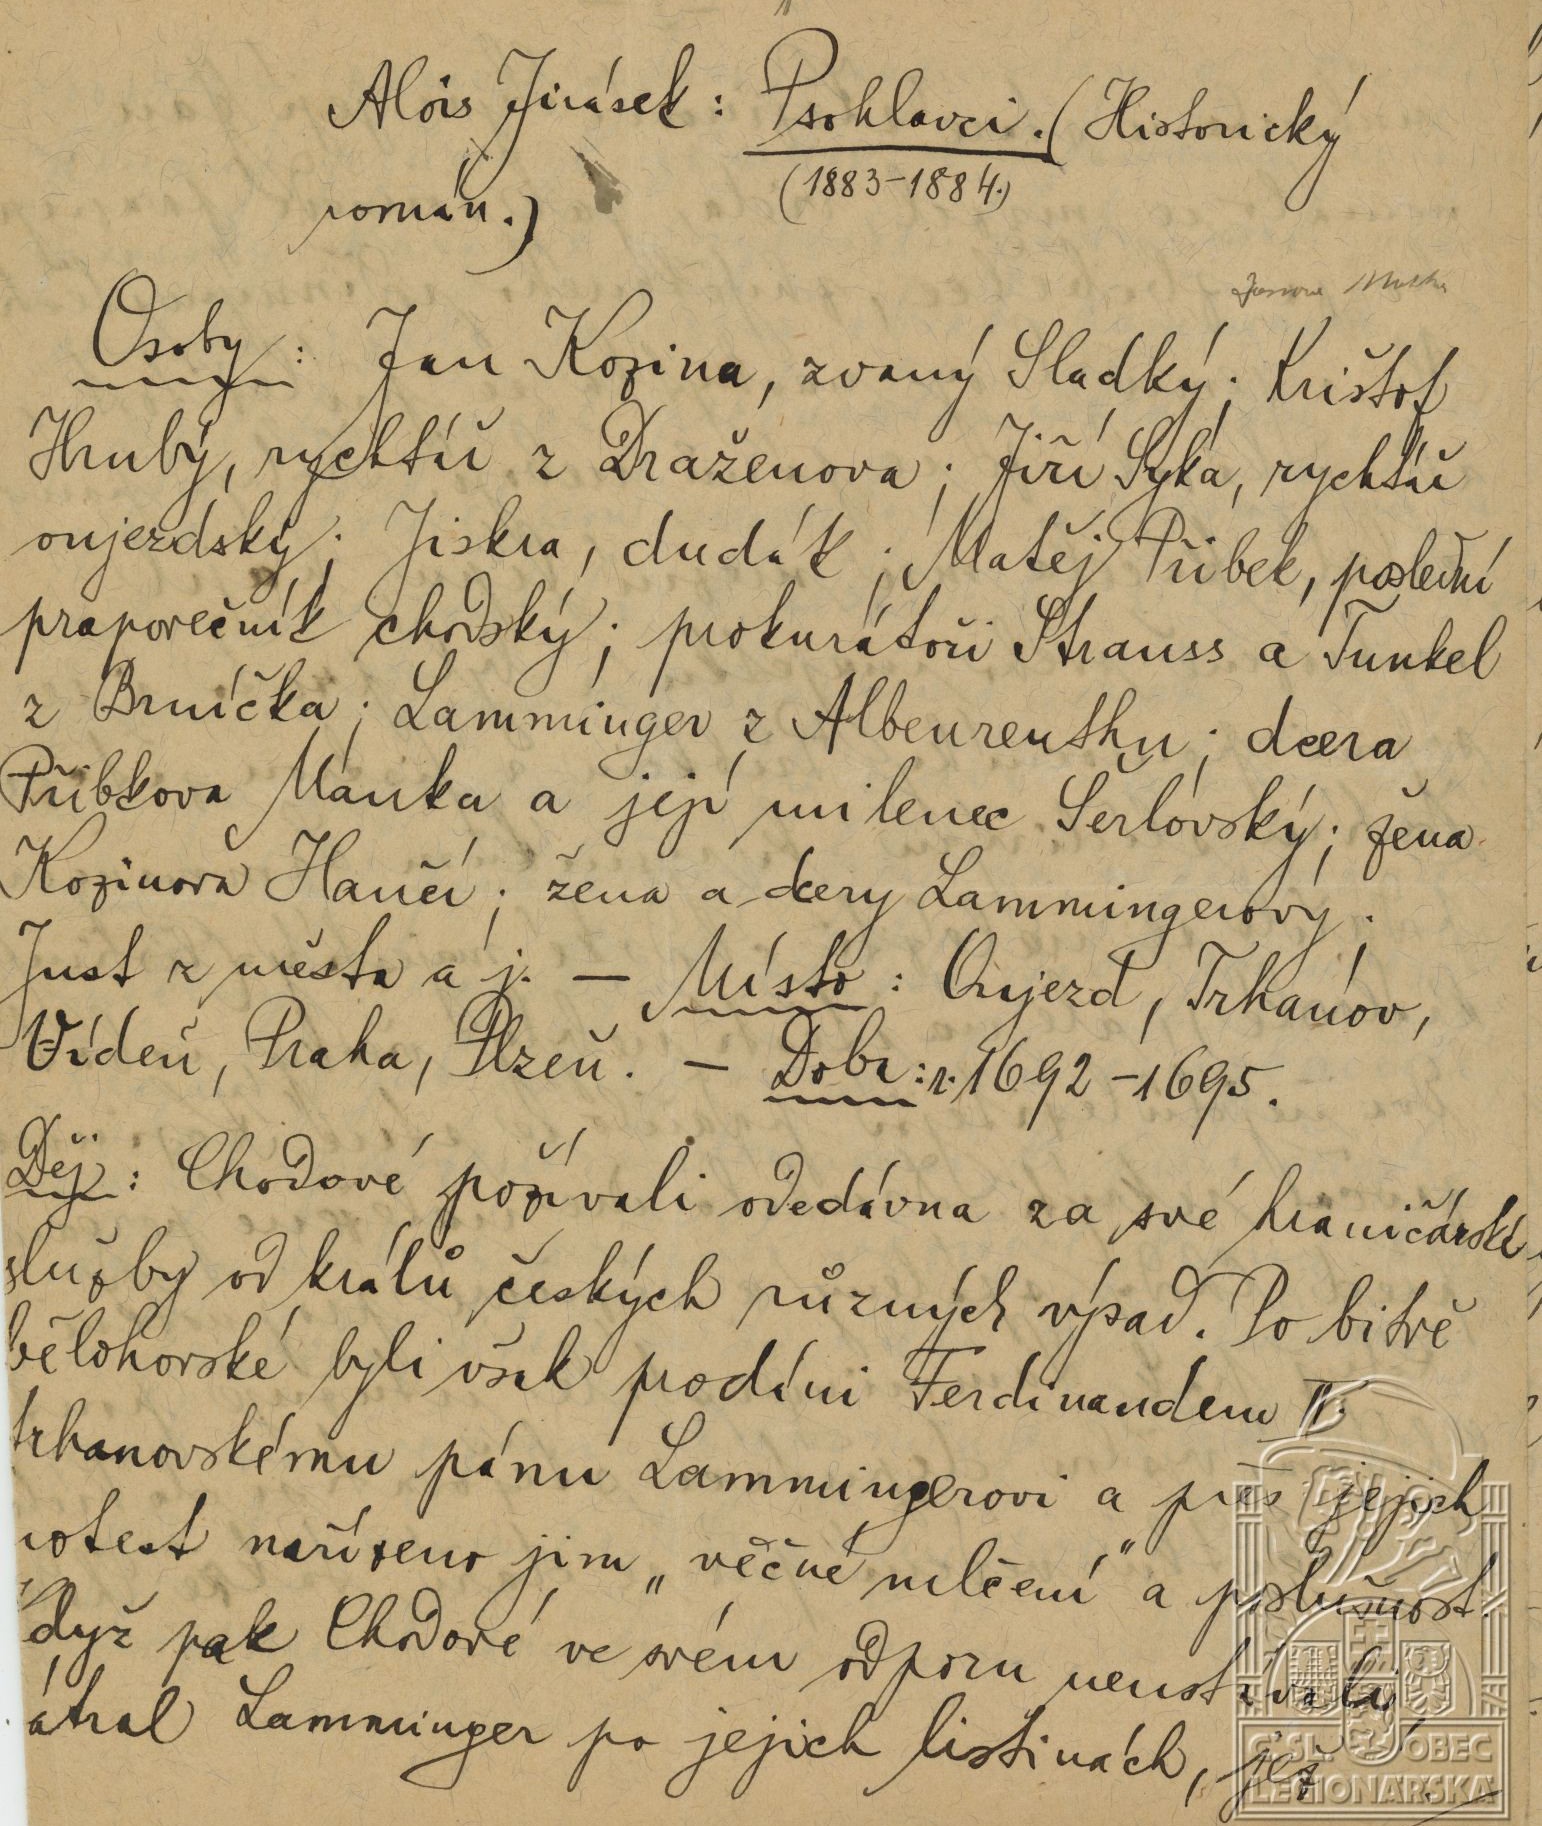 Alois Jirásek: Psohlavci. (Historický
(1883–1884.)
román.)
Osoby: Jan Kozina, zvaný Sladký; Krištof
Hrubý, rychtář z Draženova; Jiří Syka, rychtář
oujezdský; Jiskra, dudák; Matěj Přibek, poslední
praporečník chodský; prokurátoři Strauss a Tunkel
z Brníčka; Lamminger z Albenreuthu; dcera
Přibkova Manka a její milenec Šerlovský; žena
Kozinova Hančí; žena a dcery Lammingerovy.
Just z města a j. — Místo: Oujezd, Trhanov,
Vídeň, Praha, Plzeň. — Doba: r. 1692–1695.
Děj: Chodové požívali odedávna za své hraničářské
služby od králů českých různých výsad. Po bitvě
bělohorské byli však prodáni Ferdinandem II.
trhanovskému pánu Lammingerovi a přes jejich
rotest nařízeno jim „věčné mlčení" a poslušnost.
Když pak Chodové ve svém odporu neustávali
átral Lamminger po jejich listinách, jež
Č.SL. OBEC
LEGIONÁŘSKÁ